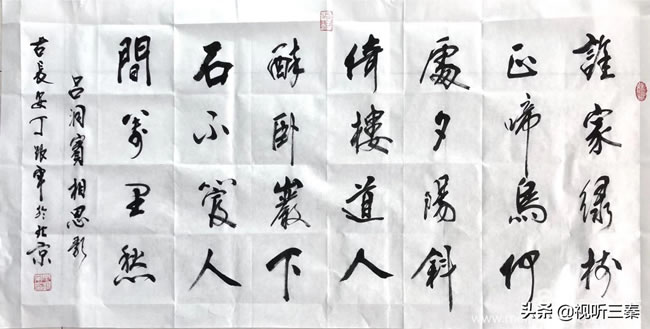 誰家绿樹
正啼鳥何
處夕陽斜
倚樓道人
醉卧巖下
石不管人
間萬里愁
吕洞賓相思
古長安丁 軍於北京
头条 @视听三秦